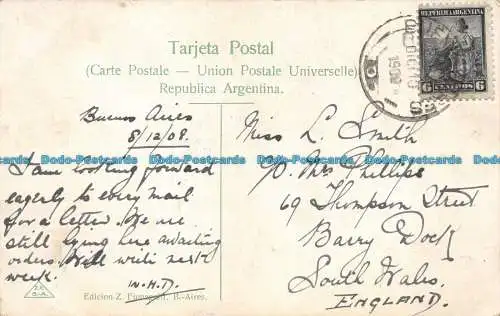 Tarjeta Postal
(Carte Postale — Union Postale Universelle)
Republica Argentina.
REPUBLICA ARGENTINA
6 CENTAVOS 6
Buenos Aires
8/12/08.
I am looking forward
eagerly to every mail
for a letter. We are
still lying here awaiting
orders. Will write next
week.
W.H.D.
Miss L. Smith
c/o Mrs Phillips
69 Thompson Street
Barry Dock
South Wales.
ENGLAND.
Edicion Z. Fumagalli, B.-Aires.
Dodo-Postcards Dodo-Postcards Dodo-Postcards Dodo-Postcards Dodo-Postcards